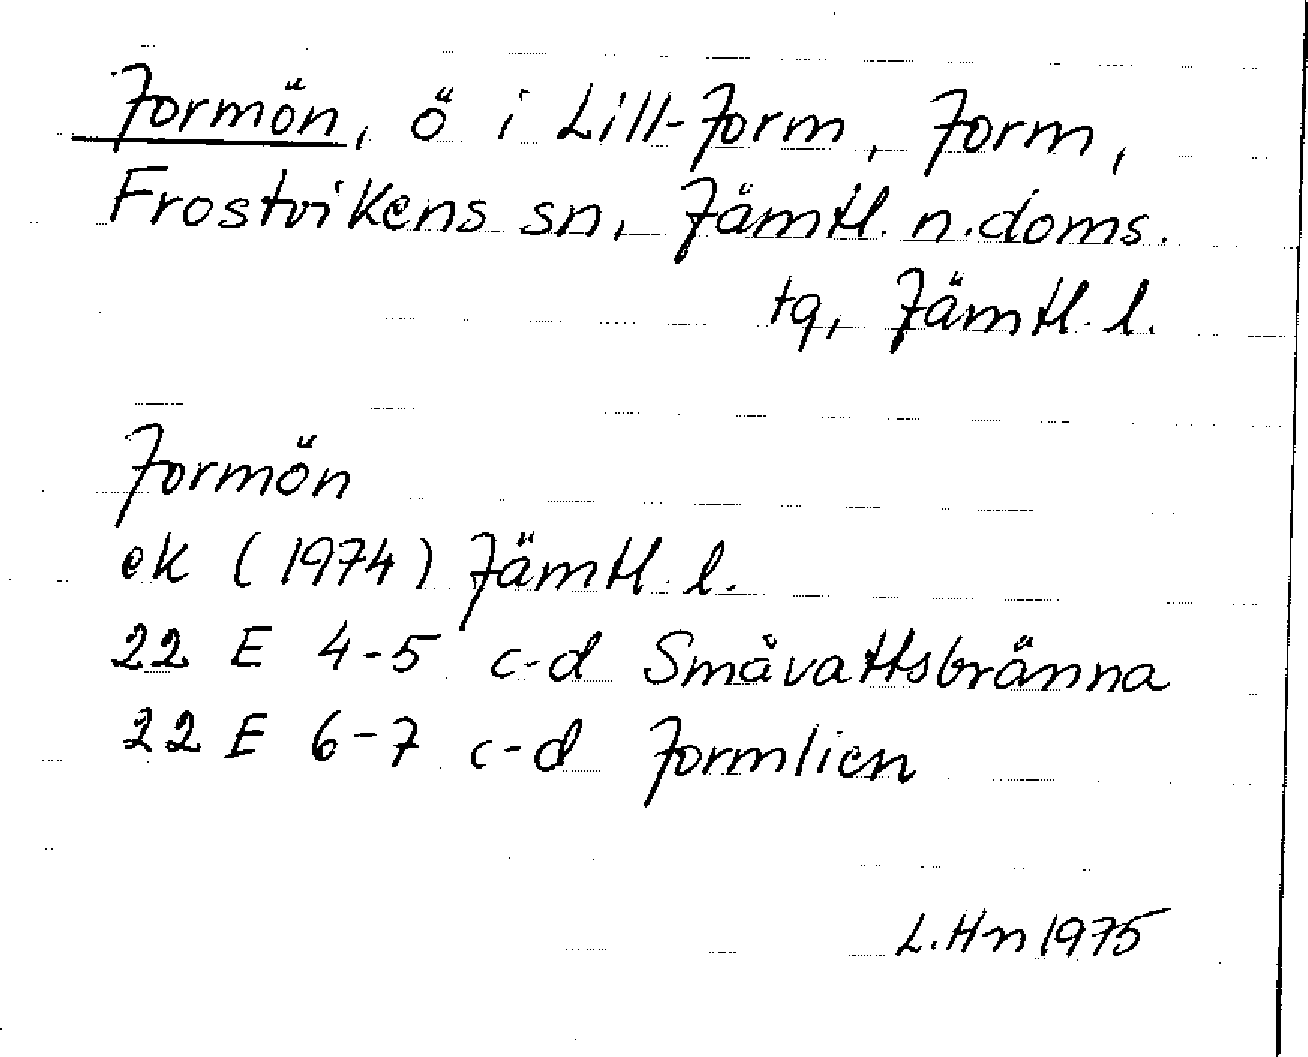 Jormön, ö i Lill-Jorm, Jorm,
Frostvikens sn, Jämtl. n. doms.
tg, Jämtl. l.
Jormön
ek (1974) Jämtl. l.
22 E 4-5 c-d Småvattsbränna
22 E 6-7 c-d Jormlien
L. Hn 1975